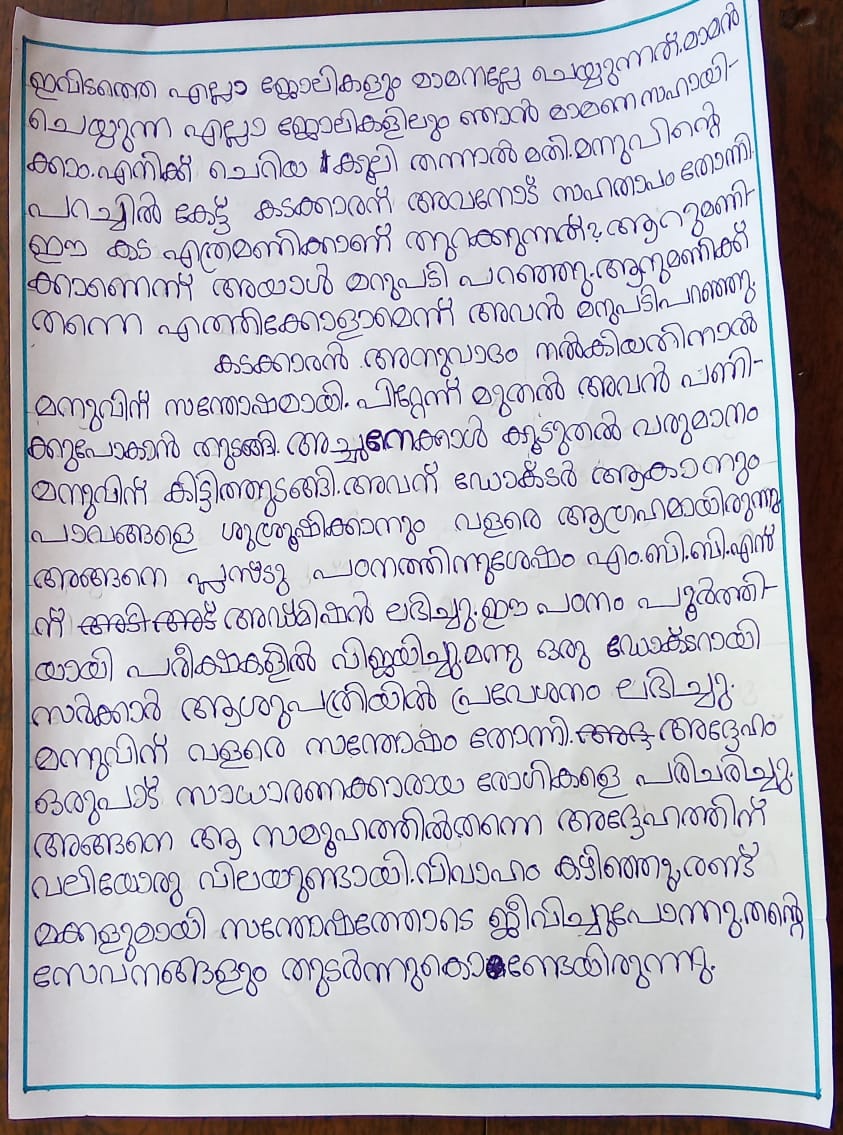 ഇവിടത്തെ എല്ലാ ജോലികളും മാമനല്ലേ ചെയ്യുന്നത്.മാമൻ
ചെയ്യുന്ന എല്ലാ ജോലികളിലും ഞാൻ മാമനെ സഹായി-
ക്കാം.എനിക്ക് ചെറിയ കൂലി തന്നാൽ മതി.മനുവിന്റെ
പറച്ചിൽ കേട്ട് കടക്കാരന് അവനോട് സഹതാപം തോന്നി.
ഈ കട എത്രമണിക്കാണ് തുറക്കുന്നത്? ആറുമണി-
ക്കാണെന്ന് അയാൾ മറുപടി പറഞ്ഞു.ആറുമണിക്ക്
തന്നെ എത്തിക്കോളാമെന്ന് അവൻ മറുപടിപറഞ്ഞു.
കടക്കാരൻ അനുവാദം നൽകിയതിനാൽ
മനുവിന് സന്തോഷമായി. പിറ്റേന്ന് മുതൽ അവൻ പണി-
ക്കുപോകാൻ തുടങ്ങി. അച്ഛനേക്കാൾ കൂടുതൽ വരുമാനം
മനുവിന് കിട്ടിത്തുടങ്ങി.അവന് ഡോക്ടർ ആകാനും
പാവങ്ങളെ ശുശ്രൂഷിക്കാനും വളരെ ആഗ്രഹമായിരുന്നു
അങ്ങനെ പ്ലസ്ടു പഠനത്തിനുശേഷം എം.ബി.ബി.എസ്
ന് അഡ്മിഷൻ ലഭിച്ചു.ഈ പഠനം പൂർത്തി-
യായി പരീക്ഷകളിൽ വിജയിച്ചു.മനു ഒരു ഡോക്ടറായി
സർക്കാർ ആശുപത്രിയിൽ പ്രവേശനം ലഭിച്ചു.
മനുവിന് വളരെ സന്തോഷം തോന്നി. അദ്ദേഹം
ഒരുപാട് സാധാരണക്കാരായ രോഗികളെ പരിചരിച്ചു.
അങ്ങനെ ആ സമൂഹത്തിൽതന്നെ അദ്ദേഹത്തിന്
വലിയോരു വിലയുണ്ടായി.വിവാഹം കഴിഞ്ഞു,രണ്ട്
മക്കളുമായി സന്തോഷത്തോടെ ജീവിച്ചുപോന്നു.തന്റെ
സേവനങ്ങളും തുടർന്നുകൊണ്ടേയിരുന്നു.